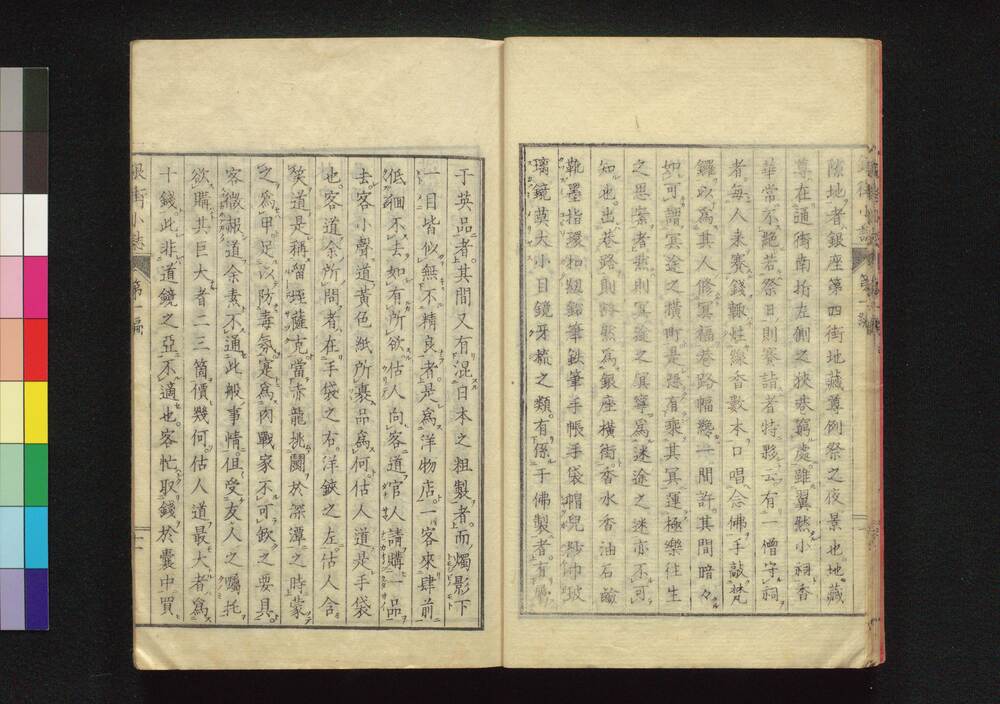 隙地者銀座第四街地藏尊例祭之夜景也地藏
尊在通街南折左側之狹巷窮處雖翼然小祠香
華常不絶若祭日則賽詣者特夥云有一僧守祠
者每人來賽錢輙姓線香數本口唱念佛手敲梵
鑼以爲其人修冥福巷路幅懸一間許其間暗々
如可謂冥途之橫町是跡有乘其冥運極樂往生
之思案者然則冥途之冥寧爲迷途之迷亦不可
知也出巷路則豁然爲銀座橫街香水香油石鹼
靴墨指環扣鈕鉛筆鉄筆手帳手袋帽兒紗巾玻
璃鏡莫大小目鏡牙梳之類有係于佛製者有
于英品者其間又有混日本之粗製者而燭影下
一目皆似無不精良者是爲洋物店一客來肆前
低徊不去如有所欲估人向客道官人請購一品
去客小聲道黃色紙所裹品爲何估人道是手袋
也客道余所問者在手袋之右洋鋏之左估人含
笑道是稱溜蛭薩克當赤龍挑鬪於深潭之時蒙
之爲甲足以防毒氛寔爲肉戰家不可欽之要具
客微報道余素不通此般事情但受友人之囑托
欲購其巨大者二三箇價幾何估人道最大者爲
十錢此非道鏡之亞不適也客忙取錢於囊中買
銀街小誌 第一編 十一